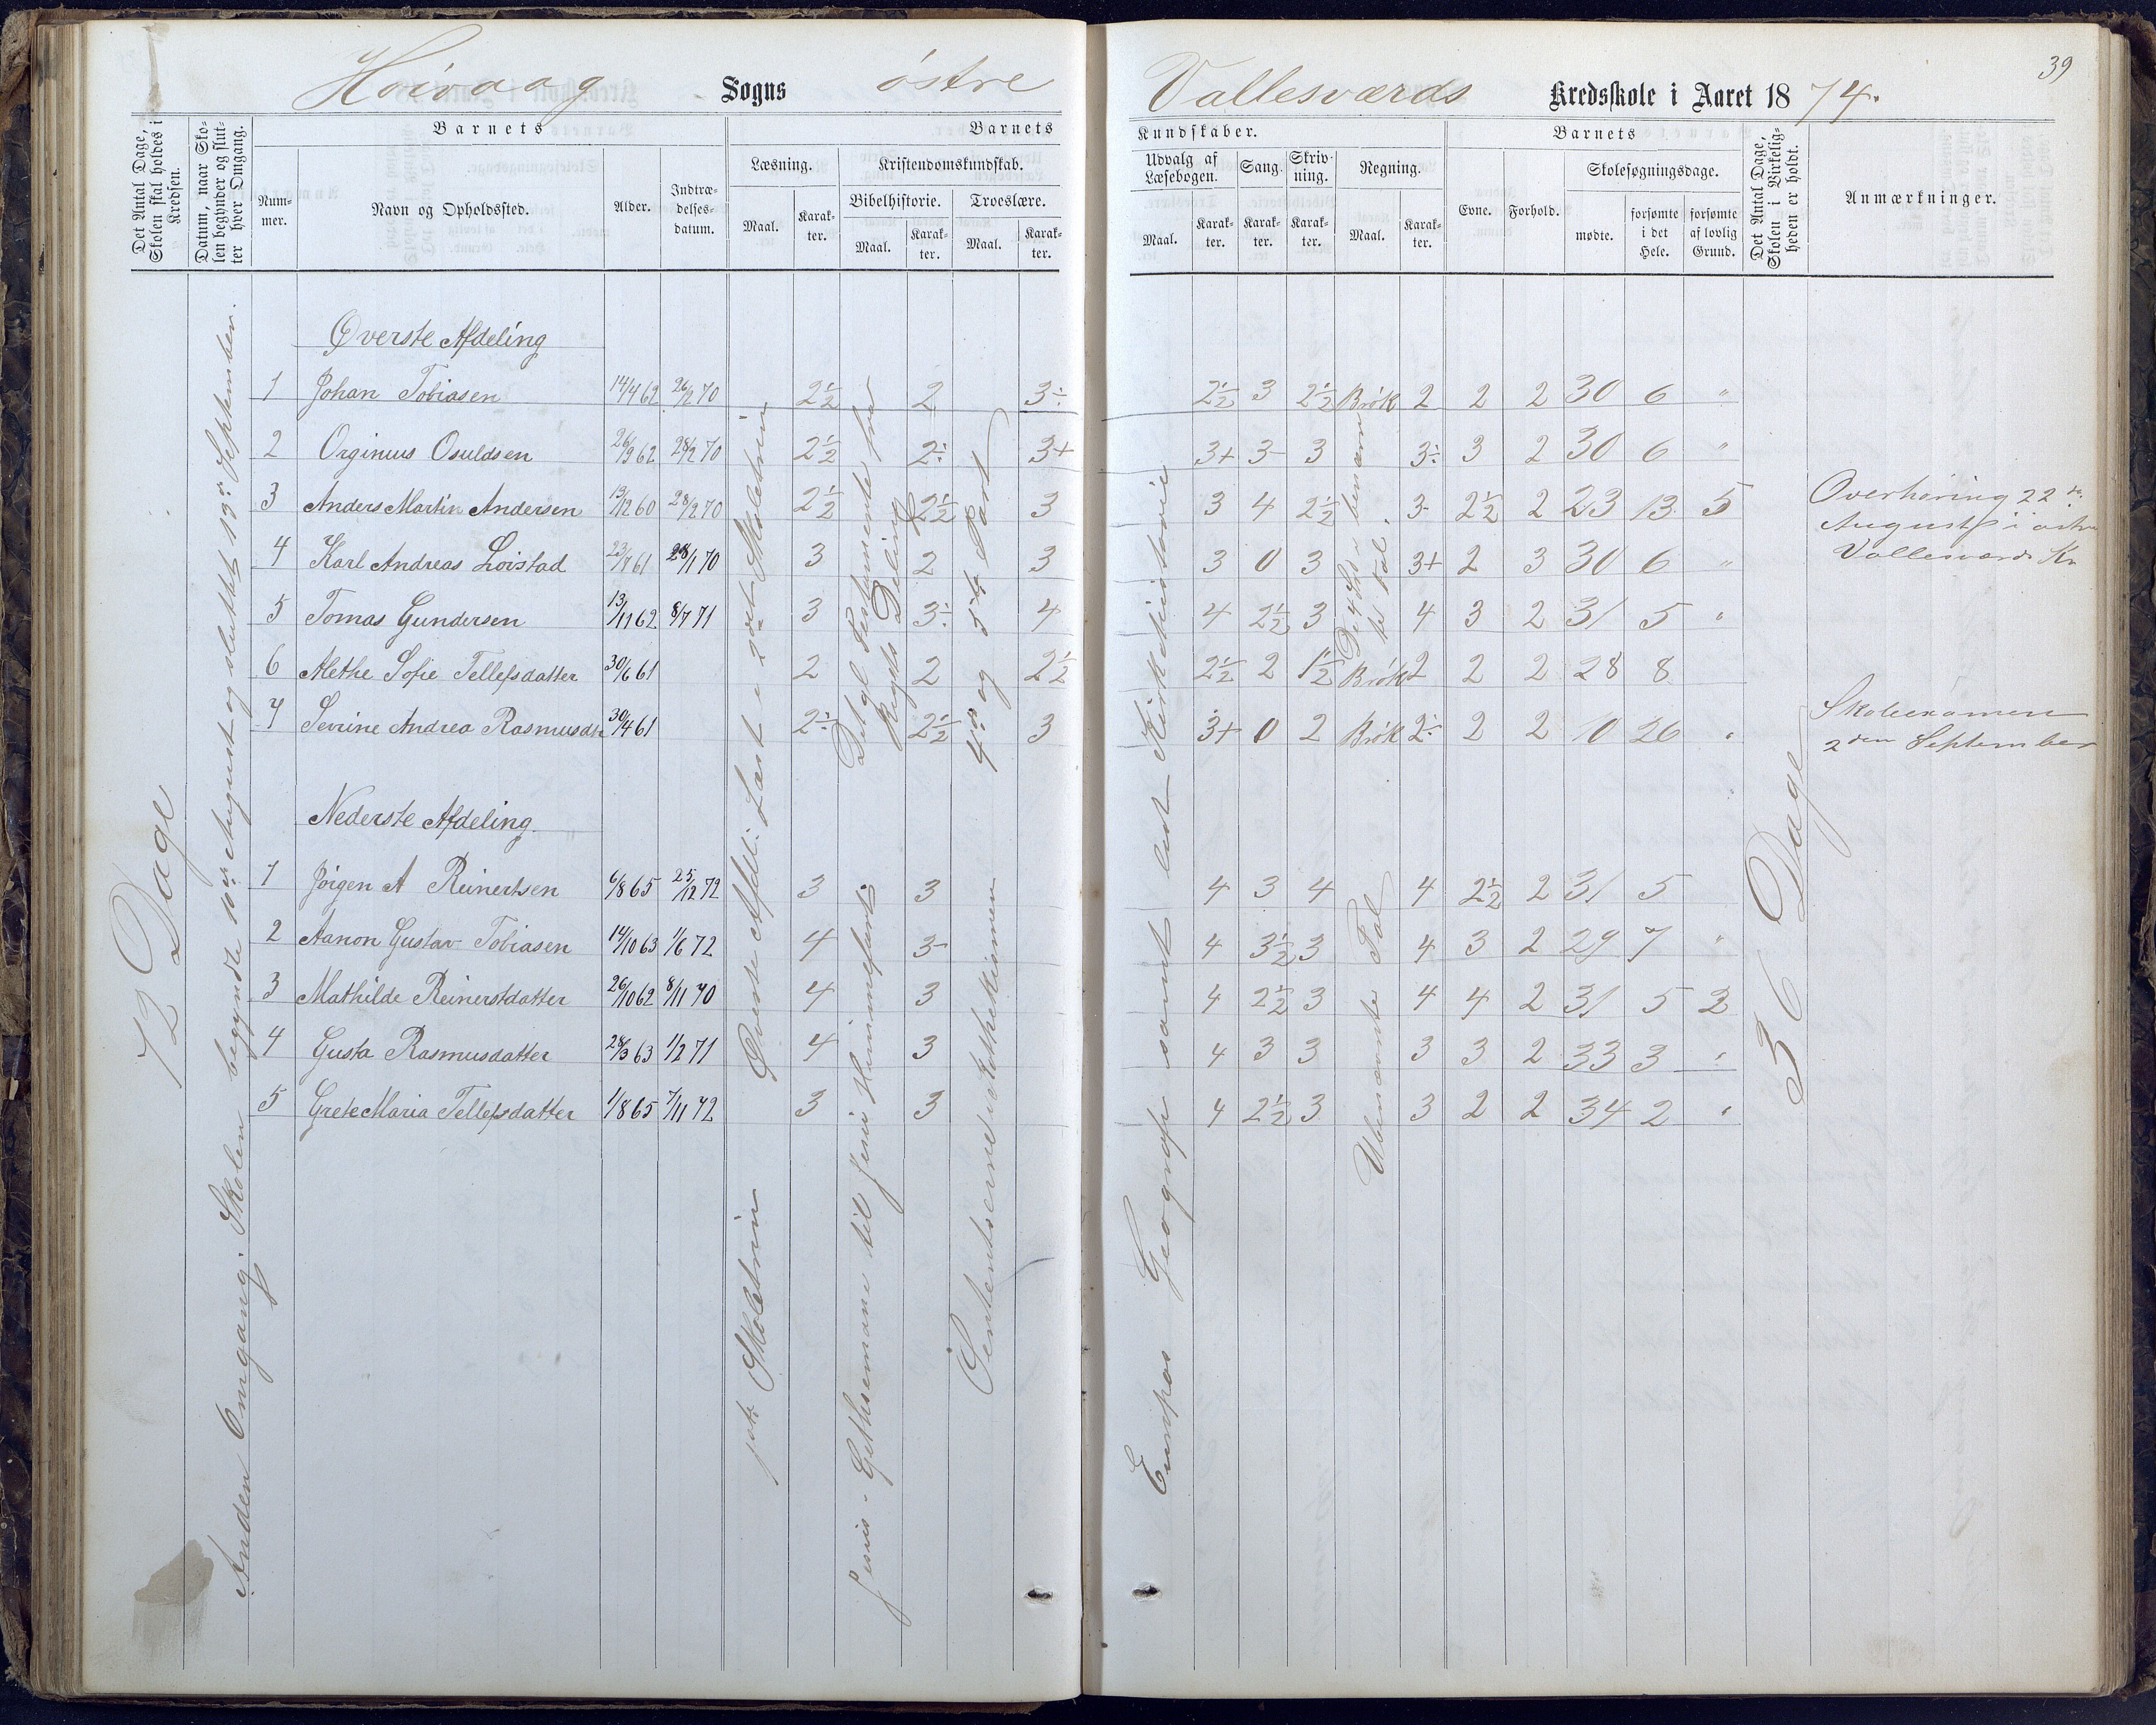 Høivaag Sogns østre Vallesværds Kredsskole i Aaret 1874.
39
Det Antal Dage, Skolen skal holdes i Kredsen.
Datum, naar Skolen begynder og slutter hver Omgang.
Barnets
Nummer.
Navn og Opholdssted.
Alder.
Indtrædelsesdatum.
Barnets
Læsning.
Maal.
Karakter.
Kristendomskundskab.
Bibelhistorie.
Maal.
Karakter.
Troeslære.
Maal.
Karakter.
Kundskaber.
Udvalg af Læsebogen.
Maal.
Karakter.
Sang.
Karakter.
Skrivning.
Karakter.
Regning.
Maal.
Karakter.
Barnets
Evne.
Forhold.
Skolesøgningsdage.
mødte.
forsømte i det Hele.
forsømte af lovlig Grund.
Det Antal Dage, Skolen i Virkeligheden er holdt.
Anmærkninger.
12 Dage
Anden Omgang. Skolen begyndte 10de August og sluttet 19de September.
Øverste Afdeling
1 Johan Tobiasen 14/4 62 26/2 70 2½ 2 3÷ 2½ 3 2½ Brøk 2 2 2 30 6 "
2 Orginius Osuldsen 26/9 62 28/2 70 2½ 2÷ 3+ 3+ 3- 3 3÷ 3 2 30 6 "
3 Anders Martin Andersen 13/12 60 28/2 70 2½ 2½ 3 3 4 2½ 3- 2½ 2 23 13 5
4 Karl Andreas Loistad 23/8 61 28/1 70 3 2 3 3 0 3 3+ 2 3 30 6 "
5 Tomas Gundersen 13/11 62 8/7 71 3 3÷ 4 4 2½ 3 4 3 2 31 5 "
6 Alethe Sofie Tellefsdatter 30/6 61 2 2 2½ 2½ 2 1½ Brøk 2 2 2 28 8
7 Sevrine Andrea Rasmusdt 30/4 61 2÷ 2½ 3 3+ 0 2 Brøk 2÷ 2 2 10 26 "
Nederste Afdeling.
1 Jörgen A Reinertsen 6/8 65 25/12 72 3 3 4 3 4 4 2½ 2 31 5
2 Aanon Gustav Tobiasen 14/10 63 1/6 72 4 3- 4 3½ 3 4 3 2 29 7 "
3 Mathilde Reinerstdatter 26/10 62 8/11 70 4 3 4 2½ 3 4 4 2 31 5 2
4 Gusta Rasmusdatter 28/3 63 1/2 71 4 3 4 3 3 3 3 2 33 3 "
5 Grete Maria Tellefsdatter 1/8 65 7/11 72 3 3 4 2½ 3 3 2 2 34 2 "
Øverste Afdl: Læst i 2det Skoletrin
1ste Skoletrin
Det gl. Testamente fra Rigets Deling
Jesus i Gethsemane til Jesu Himmelfart
4de og 5te Part
i Katekismen
Europas Geografi samt lidt Kirkehistorie
De 4 Spe. i benævnte Tal.
Ubenævnte Tal
36 Dage
Overhøring 22de
August i østre
Vallesværds Kr
Skoleexamen
2den September